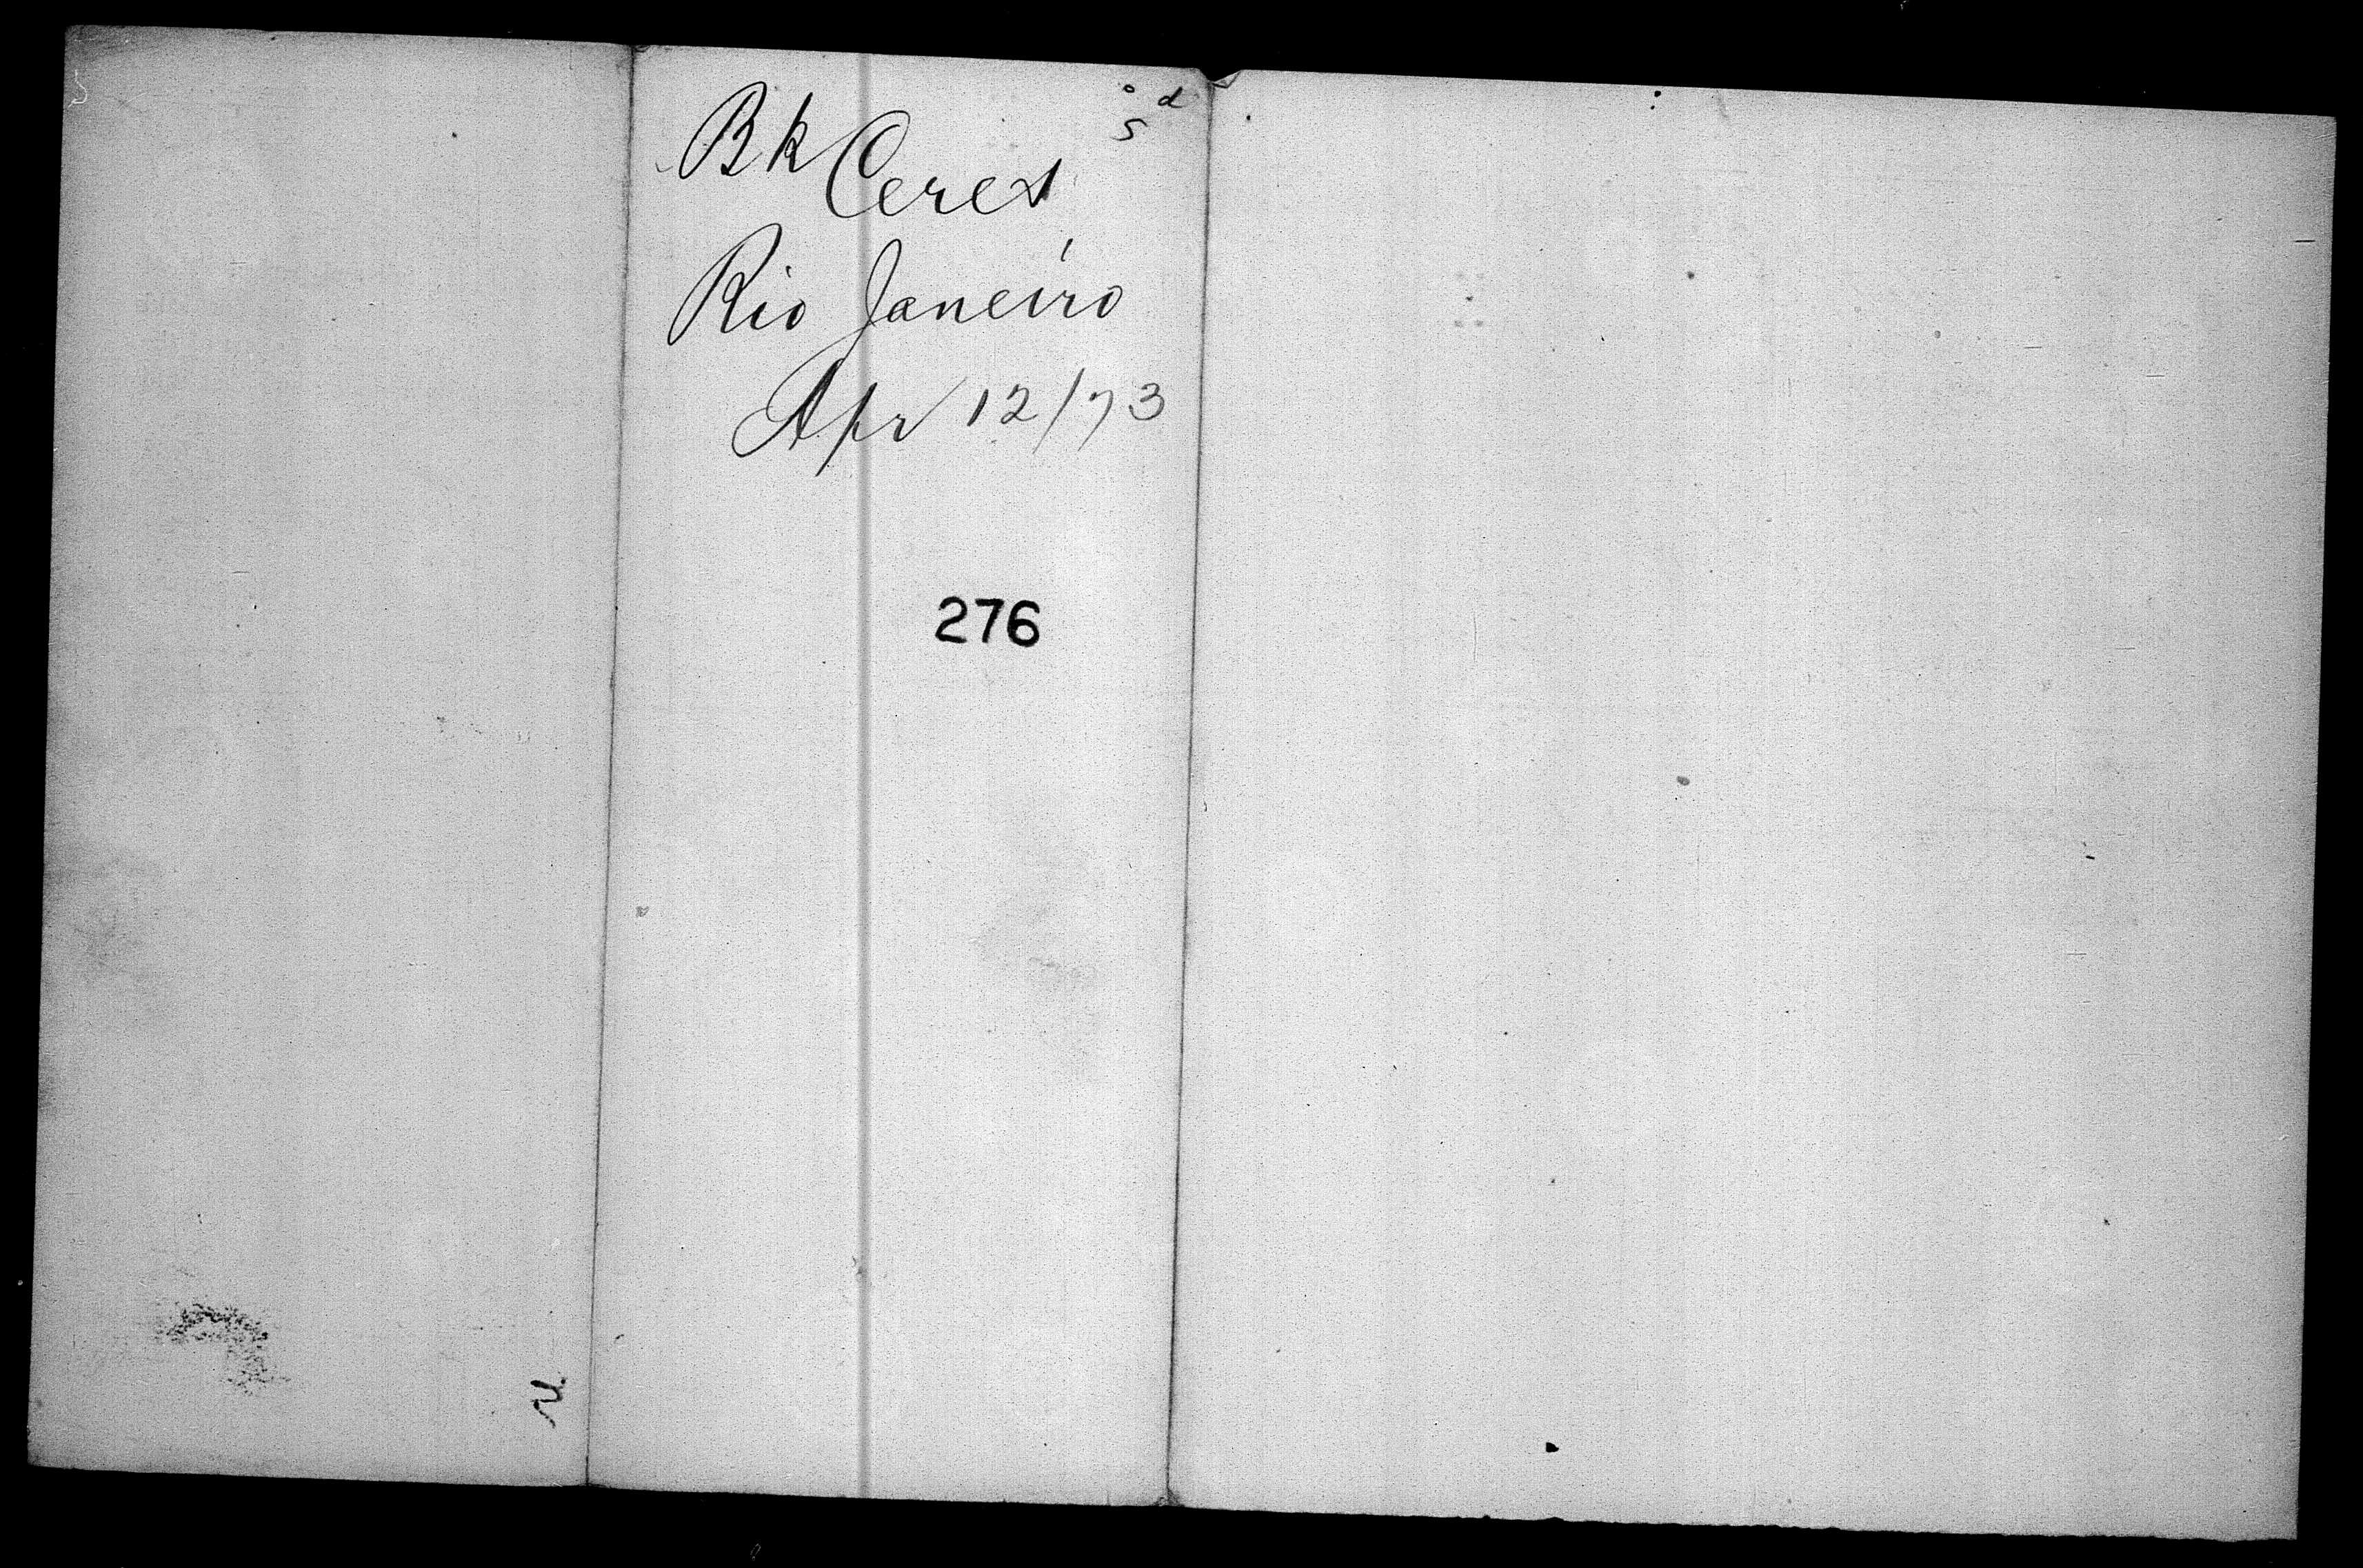 Bk Ceres
Rio Janeiro
Apr 12/73
276